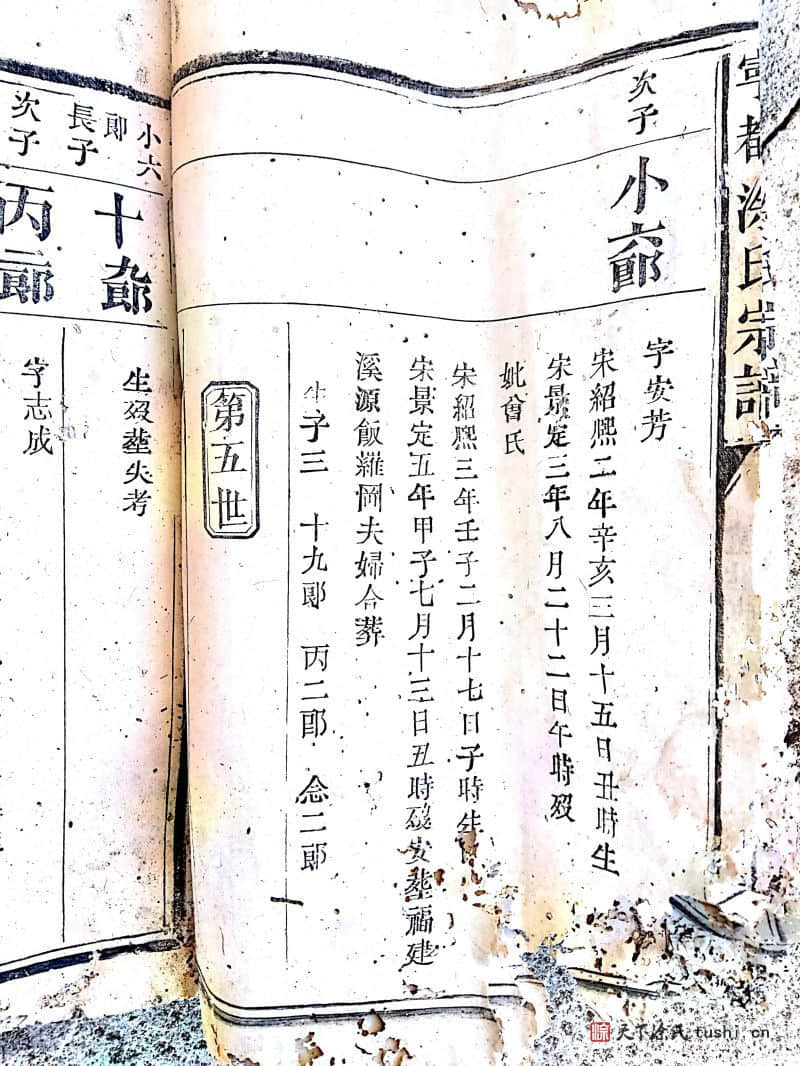 寧都涂氏宗譜
次子
小六郎
字安芳
宋紹熈二年辛亥三月十五日丑時生
宋景定三年八月二十二日午時歿
妣曾氏
宋紹熈三年壬子二月十七日子時生
宋景定五年甲子七月十三日丑時歿安塟福建
溪源飯羅岡夫婦合葬
生子三 十九郎 丙二郎 念二郎
第五世
小六
郎
長子
十九郎
生歿塟失考
次子
丙二郎
字志成
天下涂氏 tushi.cn